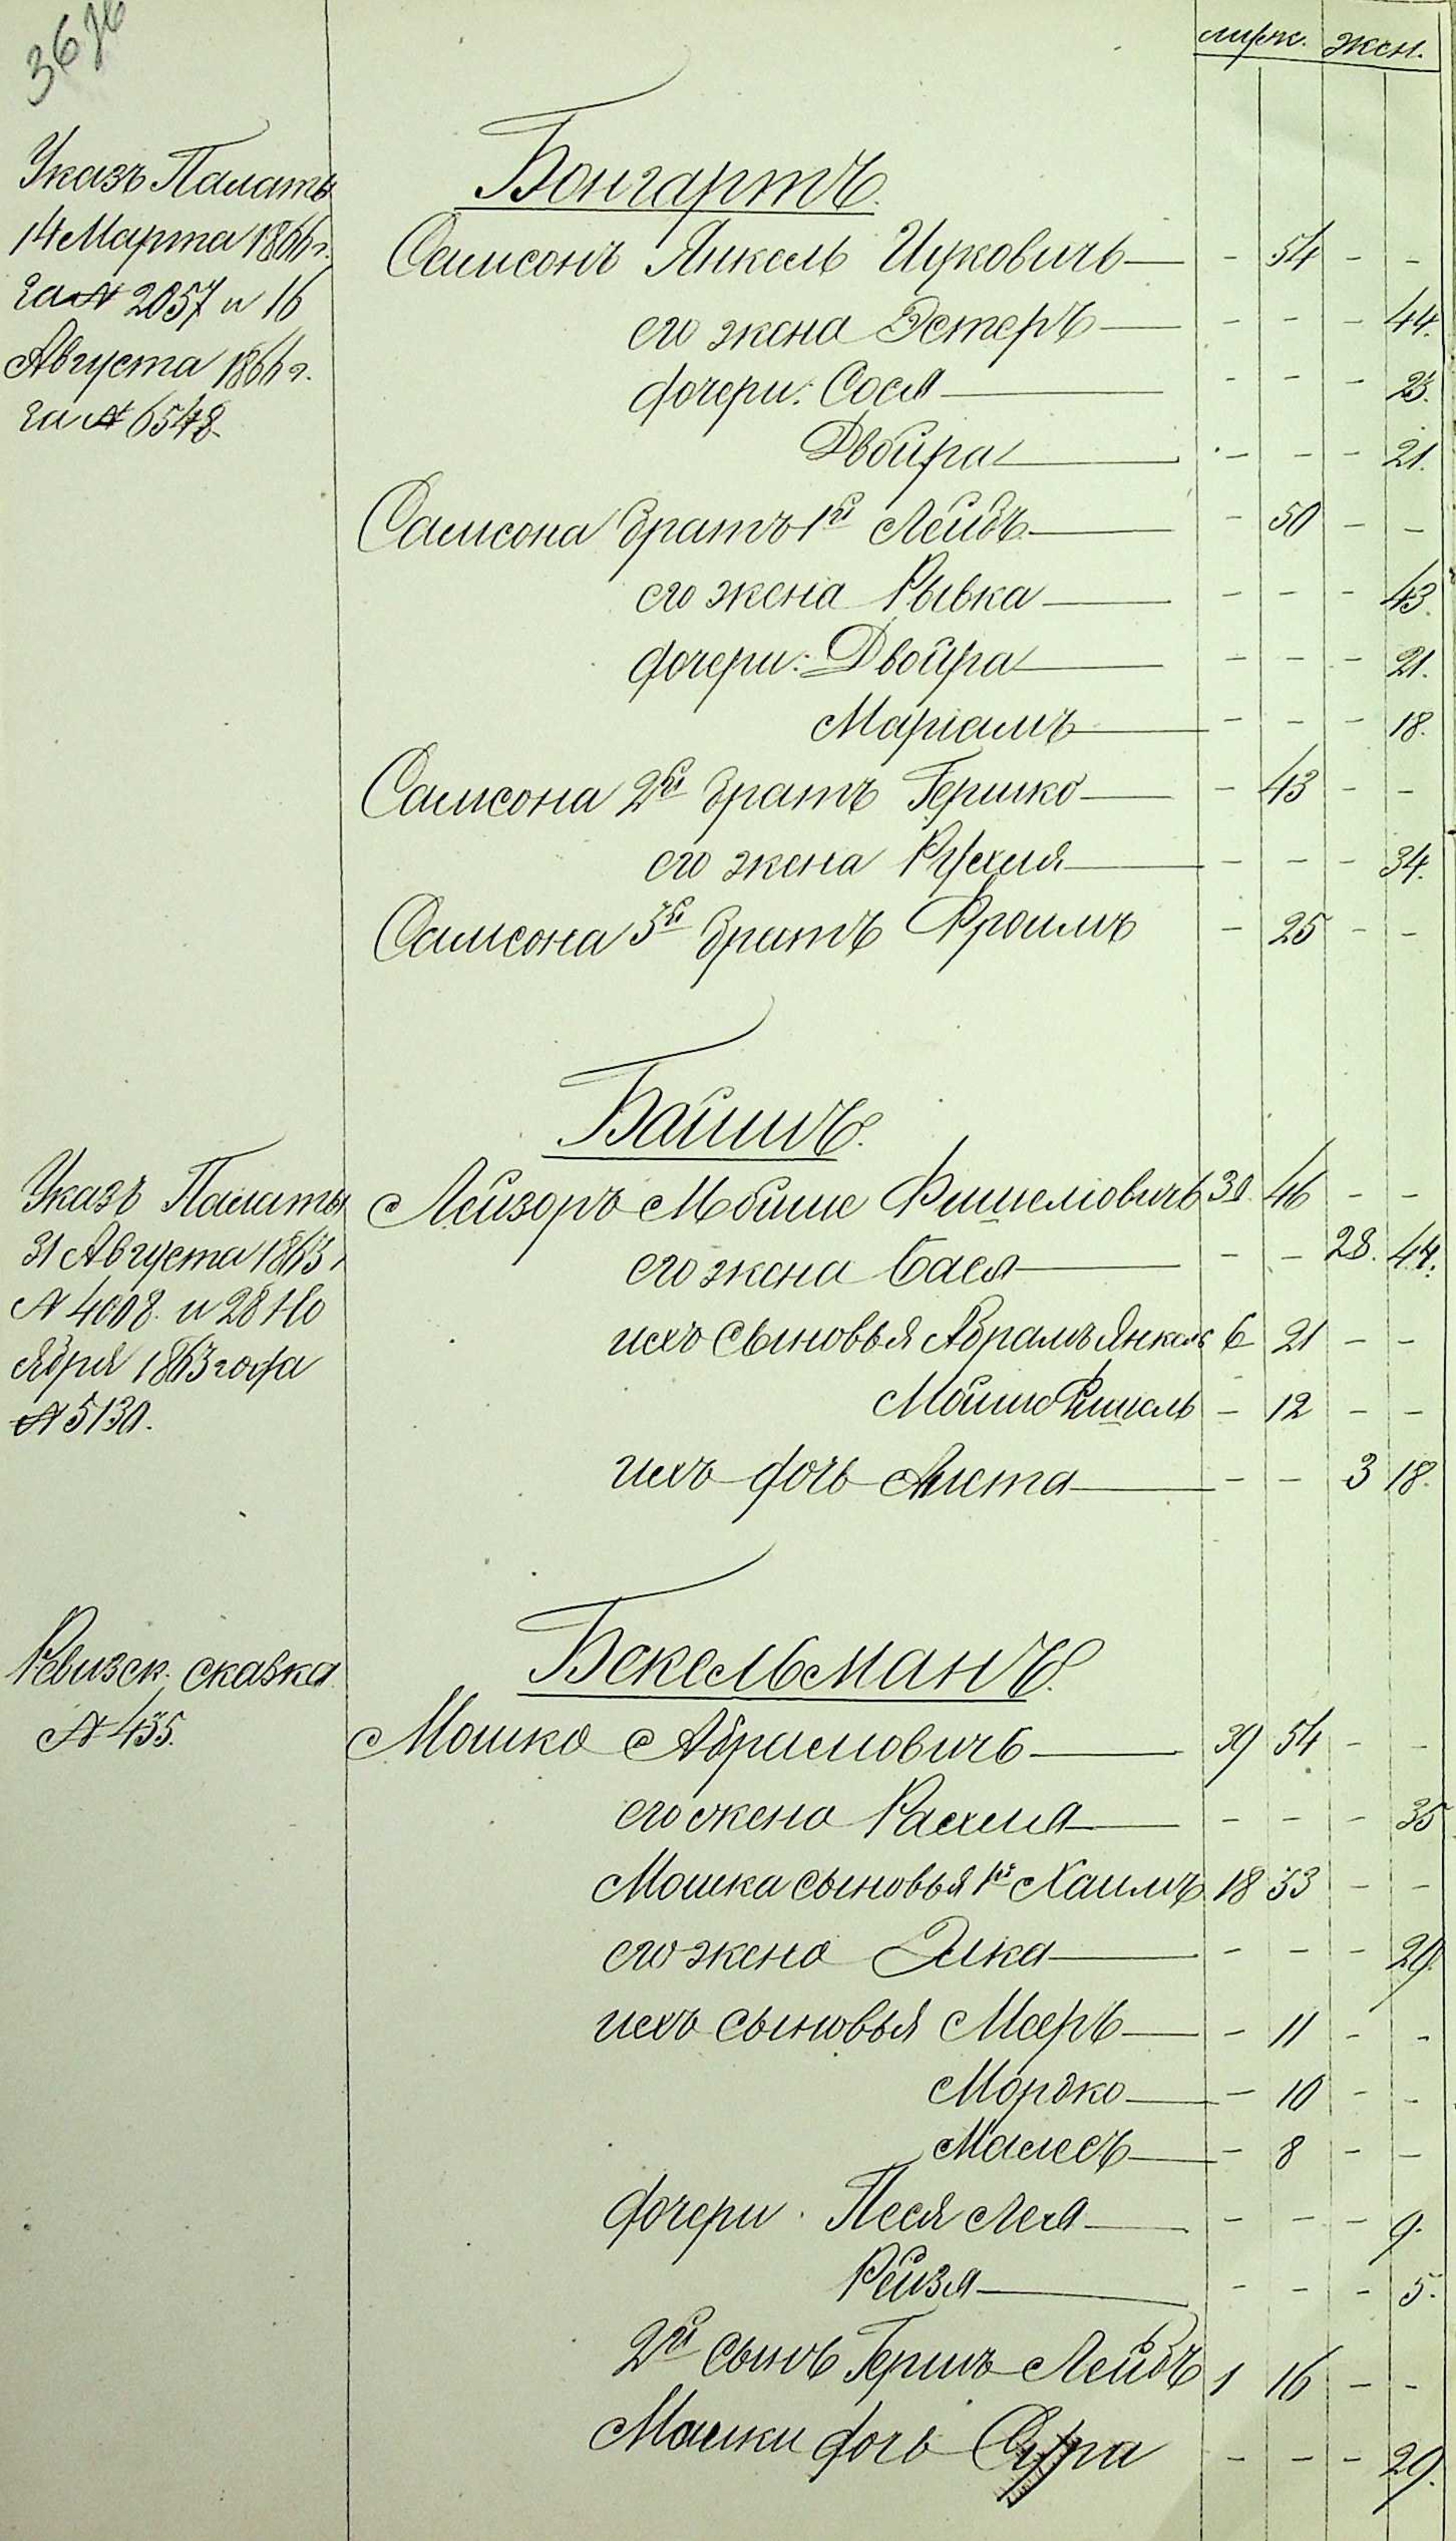 мужс. жен.
Указъ Палаты
14 Марта 1866 г.
за № 2057 и 16
Августа 1866 г.
за № 6548.
Бонгартъ.
Самсонъ Янкель Ицковичъ — - 54 - -
его жена Эстеръ — - - - 44.
дочери: Сося — - - - 23.
Двойра — - - - 21.
Самсона братъ 1й Лейбъ — - 50 - -
его жена Рывка — - - - 43.
дочери: Двойра — - - - 21.
Маріамъ — - - - 18.
Самсона 2й братъ Гершко — - 43 - -
его жена Рухля — - - - 34.
Самсона 3й братъ Фроимъ - 25 - -
Указъ Палаты
31 Августа 1863 г
№ 4008. и 28 Но
ября 1863 года
№ 5130.
Байшъ.
Лейзоръ Мойше Фишелiовичъ 30. 46 - -
его жена Бася — - - 28. 44.
ихъ сыновья Абрамъ Янкель 6 21 - -
Мойше Фишель - 12 - -
ихъ дочь — - - 3 18.
Ревизск. сказка
№ 435.
Бекельманъ.
Мошко Абрамовичъ — 39 54 - -
его жена Рахля — - - - 35
Мошка сыновья 1й Хаимъ 18 33 - -
его жена Элка — - - - 29.
ихъ сыновья Мееръ — - 11 - -
Мордко — - 10 - -
— - 8 - -
дочери. Песя Лея — - - - 9.
Рейзя — - - - 5.
2й сынъ Гершъ Лейбъ 1 16 - -
Мошки дочь Сура - - - 29.